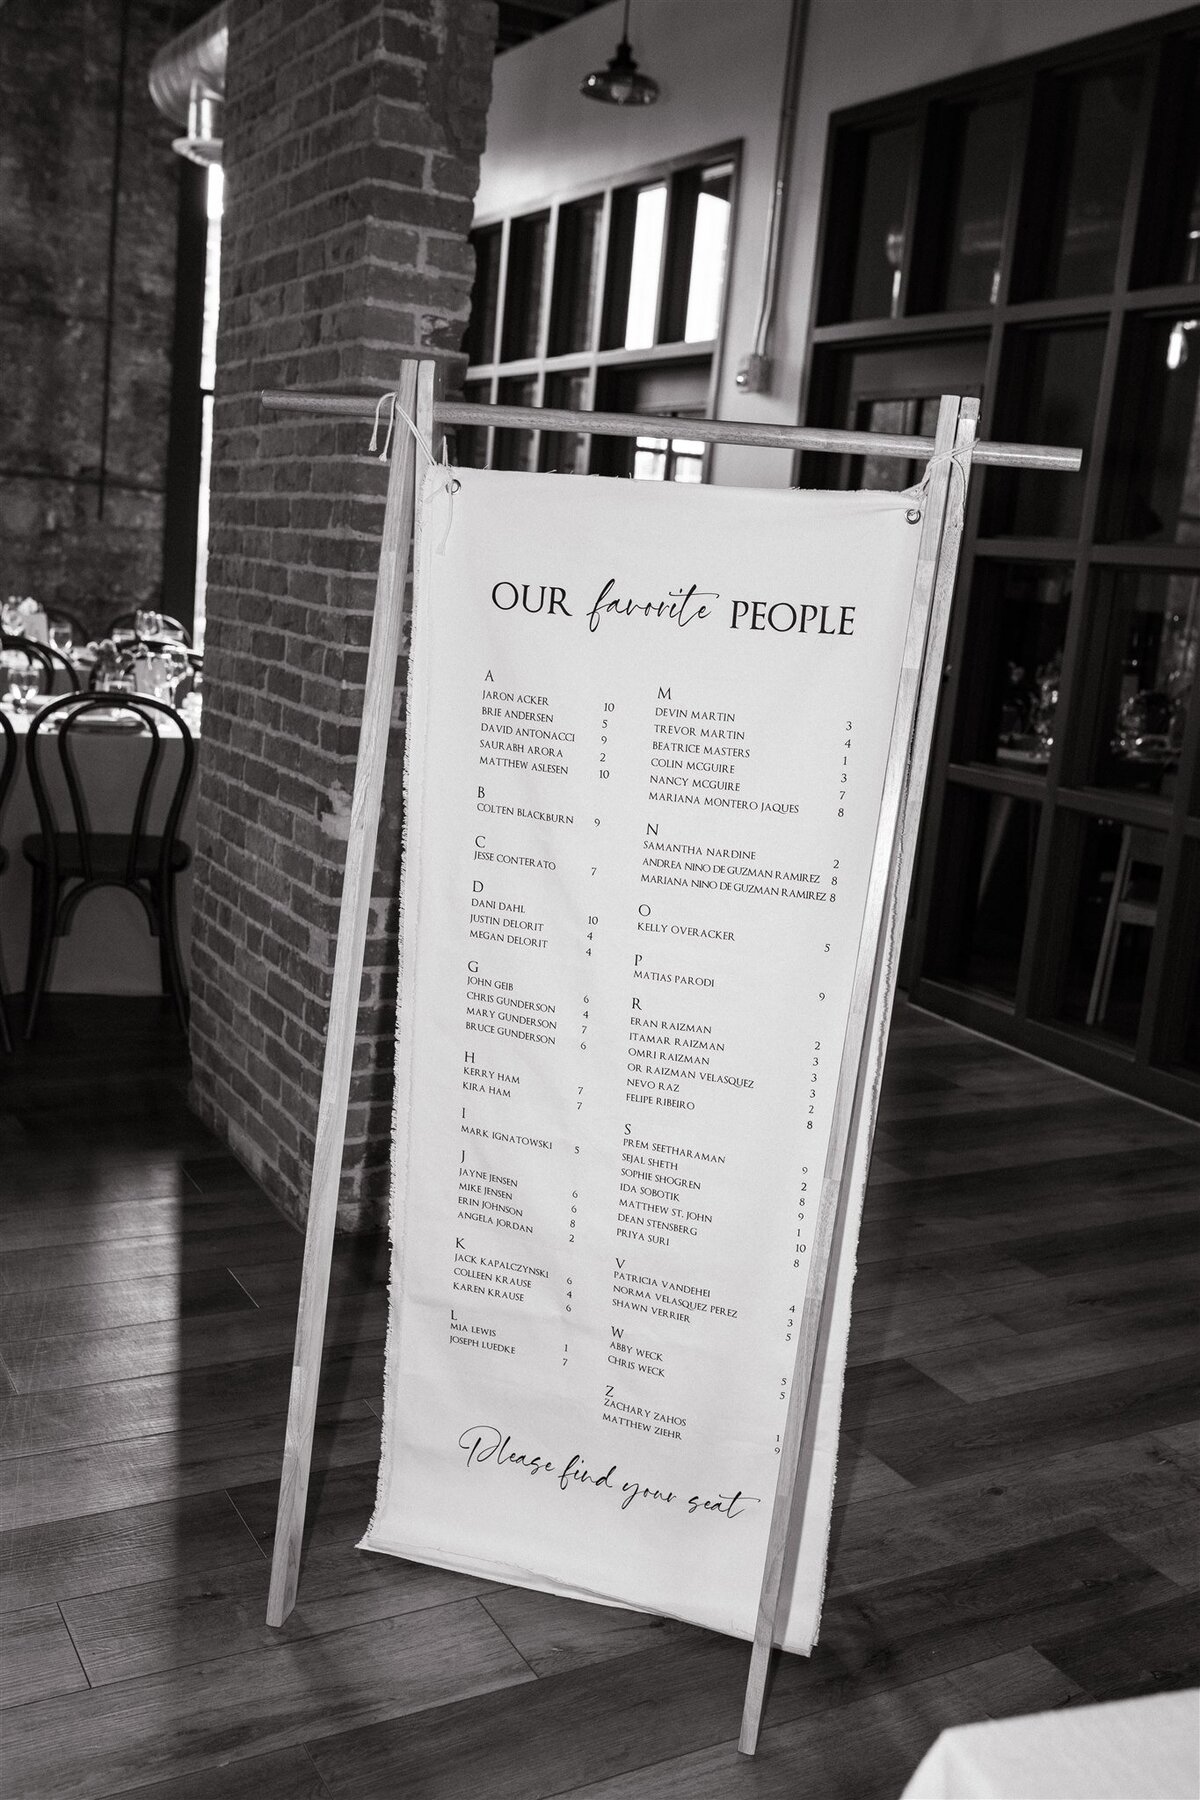 OUR favorite PEOPLE
A
JARON ACKER 10
BRIE ANDERSEN 5
DAVID ANTONACCI 9
SAURABH ARORA 2
MATTHEW ASLESEN 10
B
COLTEN BLACKBURN 9
C
JESSE CONTERATO 7
D
DANI DAHL 10
JUSTIN DELORIT 4
MEGAN DELORIT 4
G
JOHN GEIB 6
CHRIS GUNDERSON 4
MARY GUNDERSON 7
BRUCE GUNDERSON 6
H
KERRY HAM 7
KIRA HAM 7
I
MARK IGNATOWSKI 5
J
JAYNE JENSEN 6
MIKE JENSEN 6
ERIN JOHNSON 8
ANGELA JORDAN 2
K
JACK KAPALCZYNSKI 6
COLLEEN KRAUSE 4
KAREN KRAUSE 6
L
MIA LEWIS 1
JOSEPH LUEDKE 7
M
DEVIN MARTIN 3
TREVOR MARTIN 4
BEATRICE MASTERS 1
COLIN MCGUIRE 3
NANCY MCGUIRE 7
MARIANA MONTERO JAQUES 8
N
SAMANTHA NARDINE 2
ANDREA NINO DE GUZMAN RAMIREZ 8
MARIANA NINO DE GUZMAN RAMIREZ 8
O
KELLY OVERACKER 5
P
MATIAS PARODI 9
R
ERAN RAIZMAN 2
ITAMAR RAIZMAN 3
OMRI RAIZMAN 3
OR RAIZMAN VELASQUEZ 3
NEVO RAZ 2
FELIPE RIBEIRO 8
S
PREM SEETHARAMAN 9
SEJAL SHETH 2
SOPHIE SHOGREN 8
IDA SOBOTIK 9
MATTHEW ST. JOHN 1
DEAN STENSBERG 10
PRIYA SURI 8
V
PATRICIA VANDEHEI 4
NORMA VELASQUEZ PEREZ 3
SHAWN VERRIER 5
W
ABBY WECK 5
CHRIS WECK 5
Z
ZACHARY ZAHOS 1
MATTHEW ZIEHR 9
Please find your seat